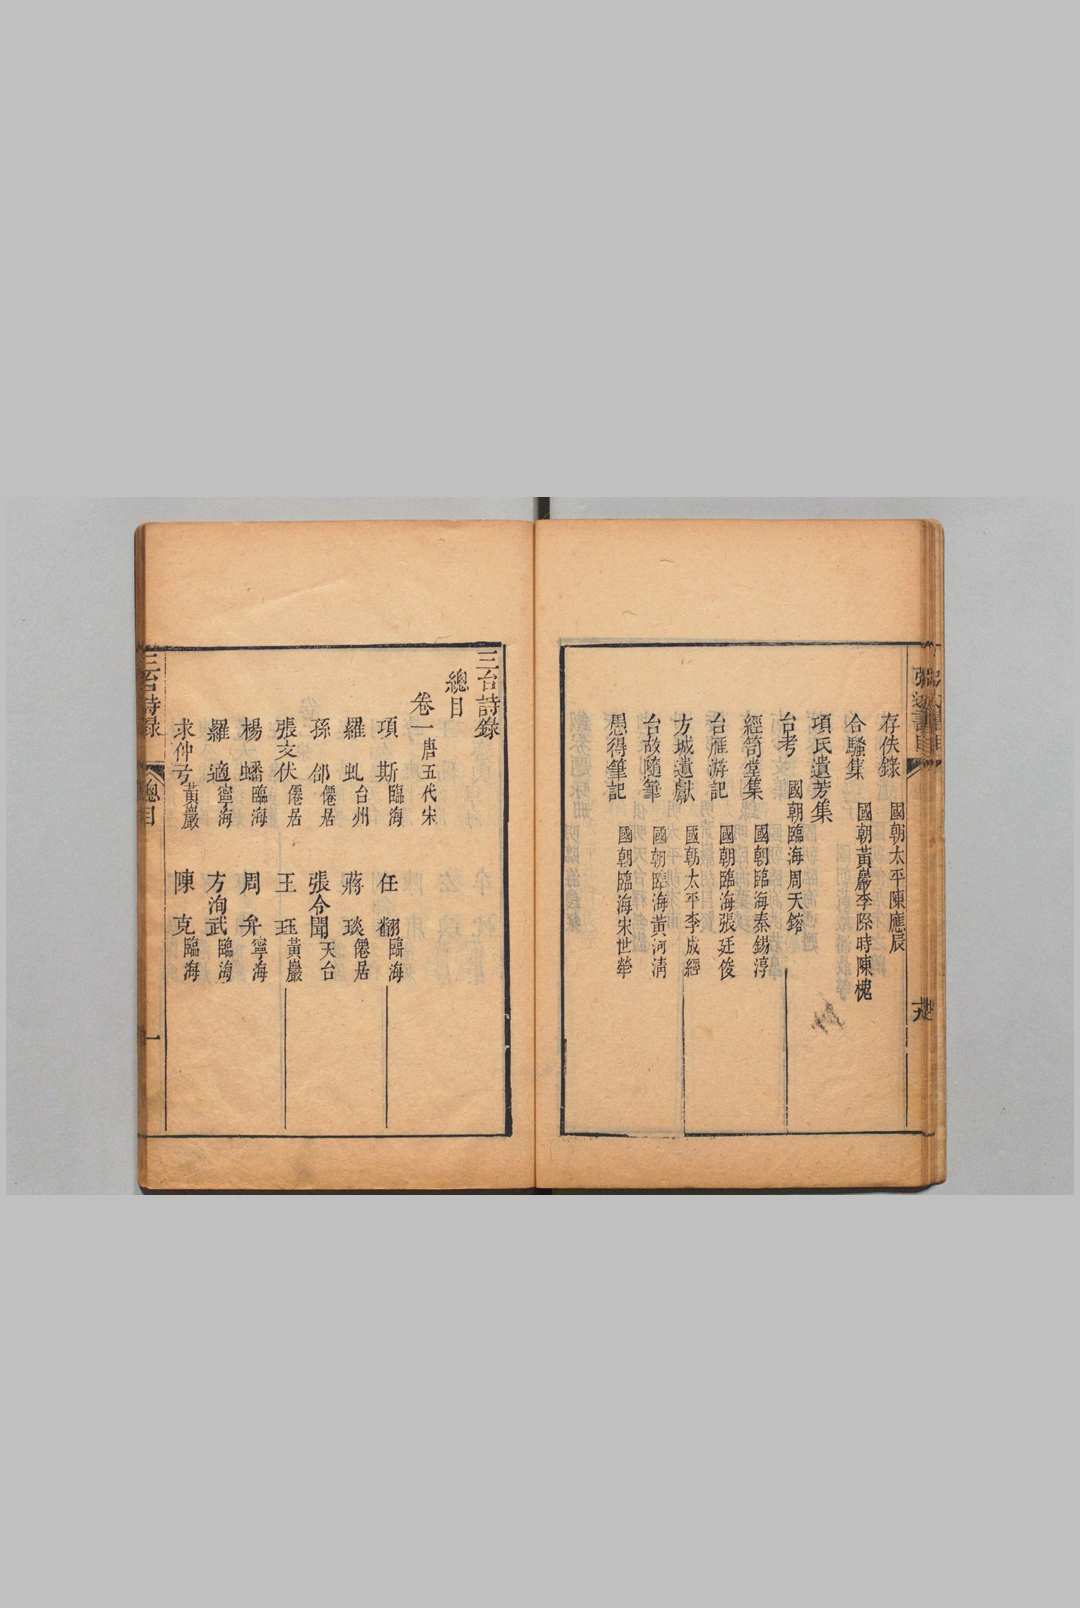 存佚錄 國朝太平陳應辰
合騷集 國朝黃巖李際時陳槐
項氏遺芳集
台考 國朝臨海周天鎔
經笥堂集 國朝臨海秦錫淳
台雁游記 國朝臨海張廷俊
方城遺獻 國朝太平李成經
台故隨筆 國朝臨海黃河清
愚得筆記 國朝臨海宋世犖
三台詩錄
總目
卷一 唐五代宋
項斯 臨海 任翻 臨海
羅虬 台州 蔣琰 僊居
孫郃 僊居 張令聞 天台
張文伏 僊居 王珏 黃巖
楊蟠 臨海 周弁 寧海
羅適 寧海 方洵武 臨海
求仲弓 黃巖 陳克 臨海
三台詩錄 總目 一